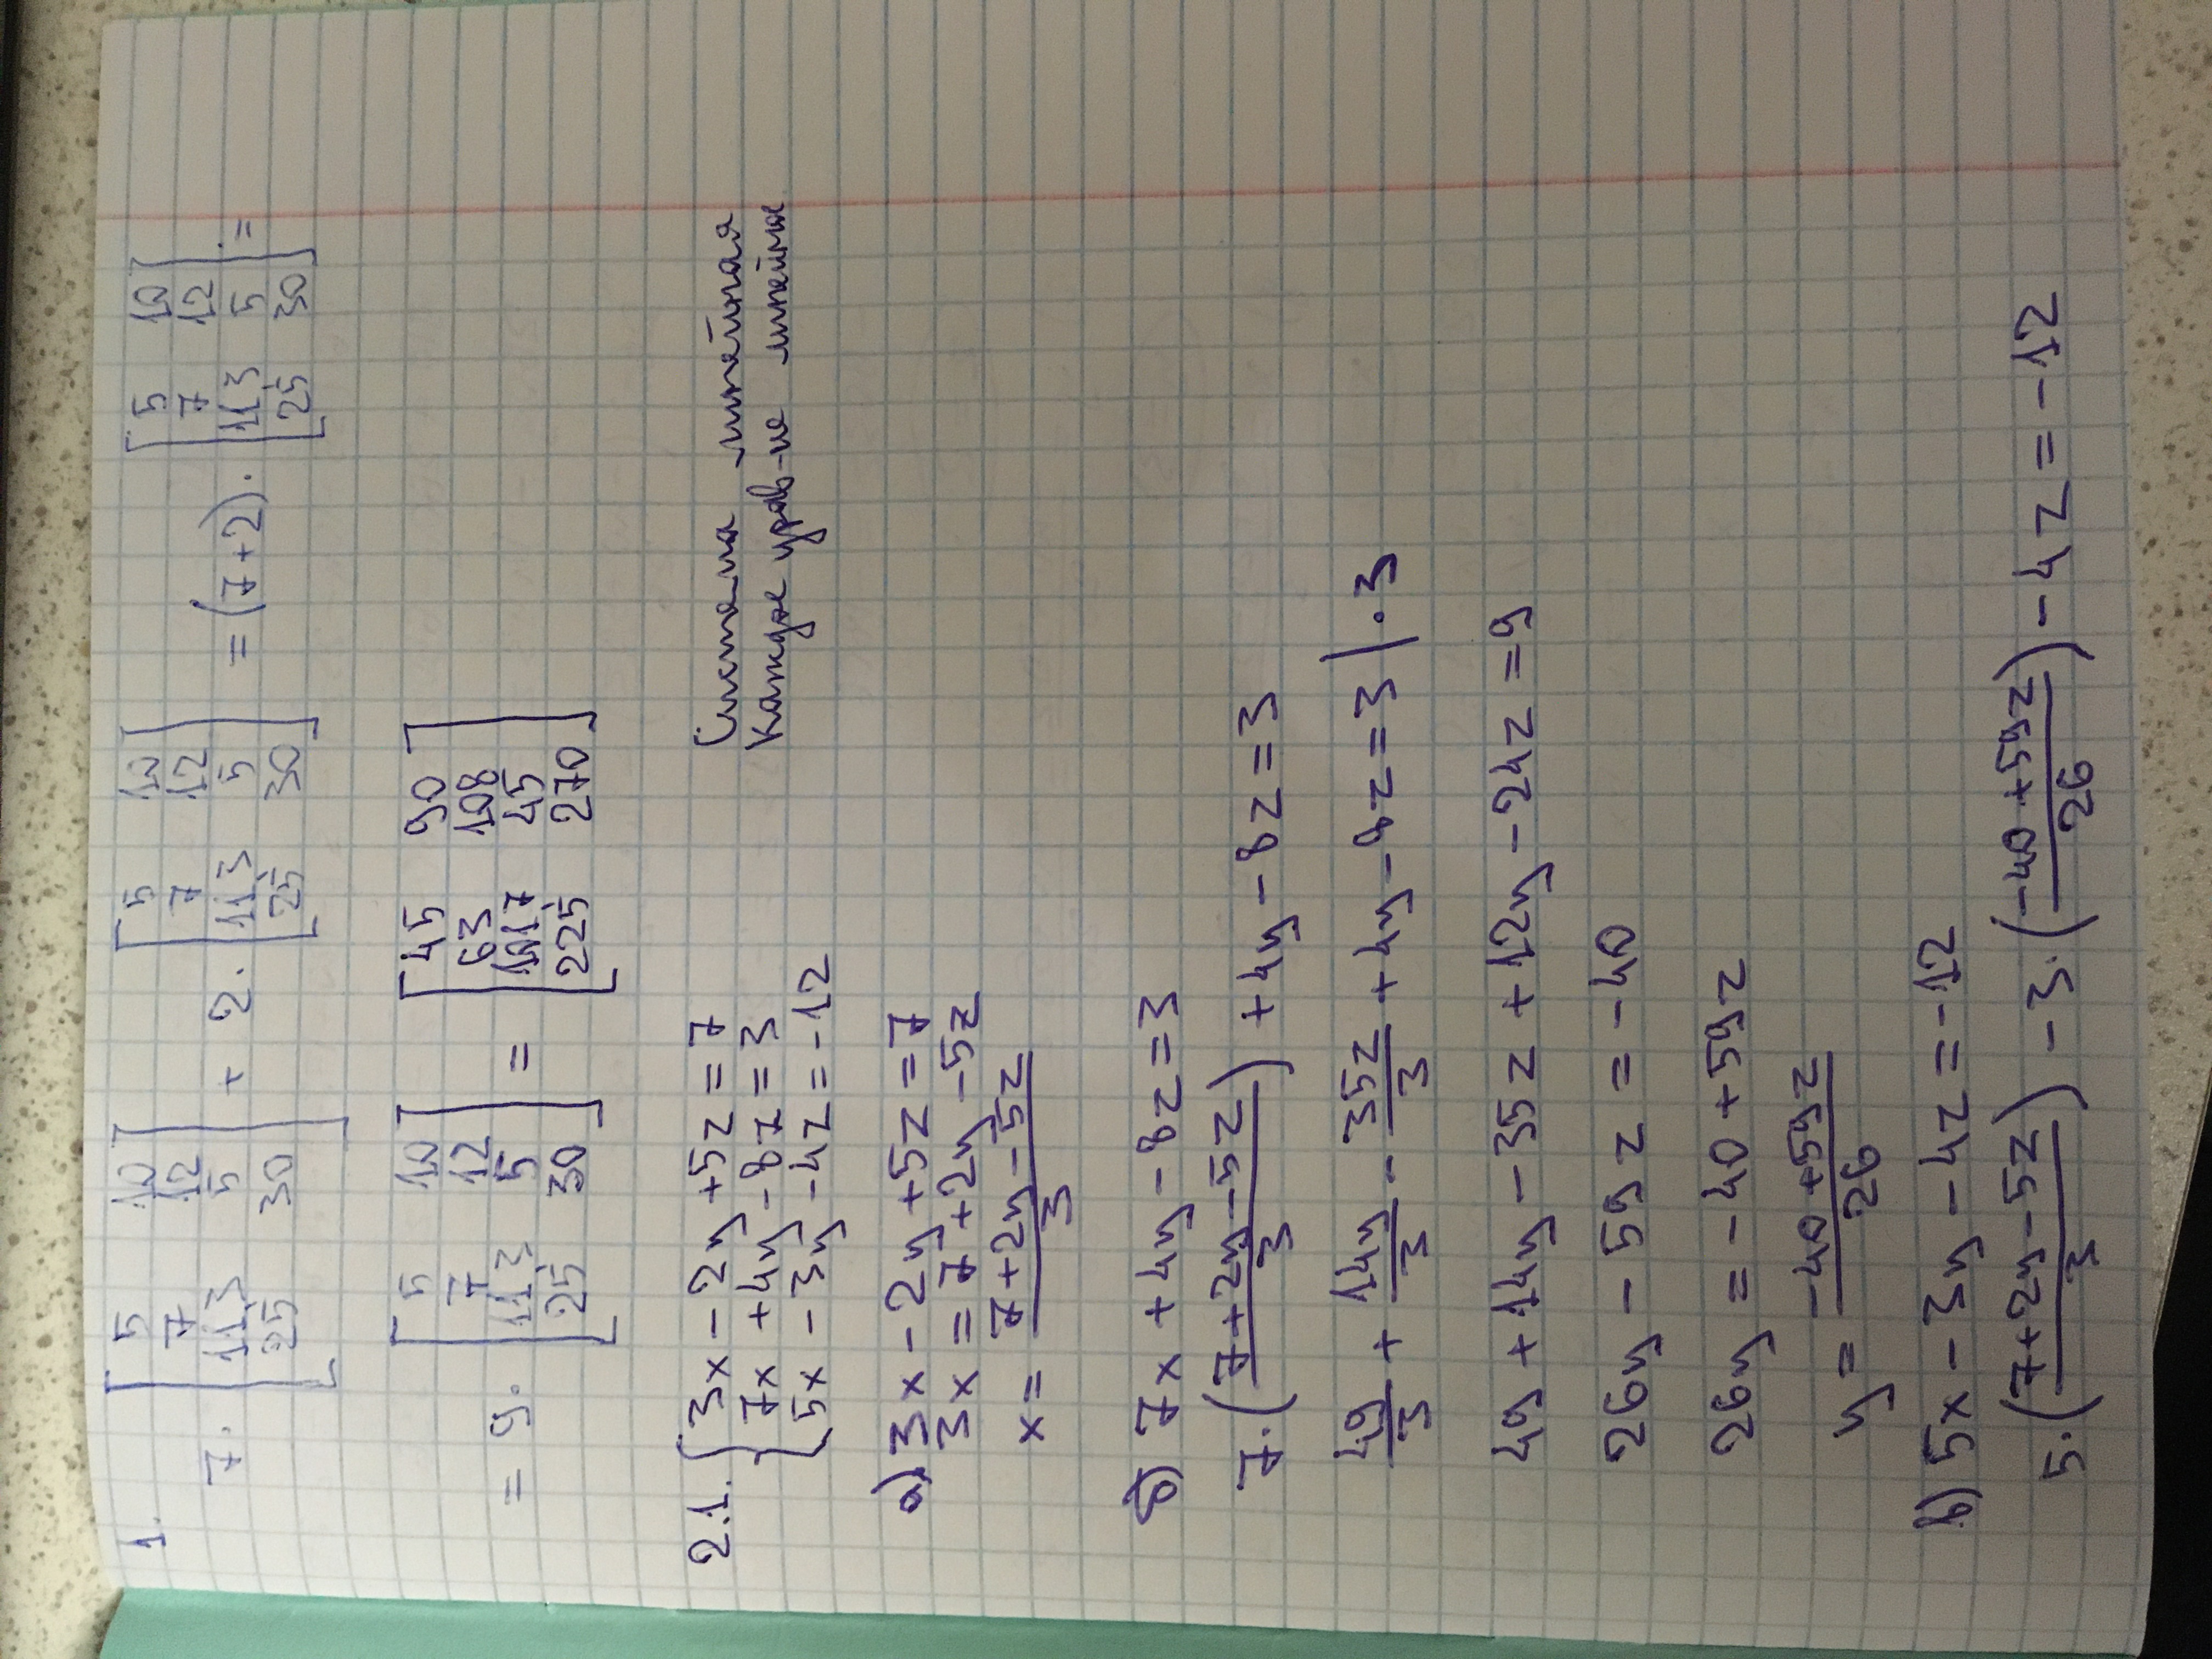 1.
7· [5 10; 7 12; 11,3 5; 25 30] + 2· [5 10; 7 12; 11,3 5; 25 30] = (7+2)· [5 10; 7 12; 11,3 5; 25 30] =
= 9· [5 10; 7 12; 11,3 5; 25 30] = [45 90; 63 108; 101,7 45; 225 270]
2.1. { 3x - 2y + 5z = 7 Система линейная
7x + 4y - 8z = 3 Каждое урав-ие линейное
5x - 3y - 4z = -12
а) 3x - 2y + 5z = 7
3x = 7 + 2y - 5z
x = (7 + 2y - 5z)/3
б) 7x + 4y - 8z = 3
7·((7 + 2y - 5z)/3) + 4y - 8z = 3
49/3 + 14y/3 - 35z/3 + 4y - 8z = 3 |·3
49 + 14y - 35z + 12y - 24z = 9
26y - 59z = -40
26y = -40 + 59z
y = (-40 + 59z)/26
в) 5x - 3y - 4z = -12
5·((7 + 2y - 5z)/3) - 3·((-40 + 59z)/26) - 4z = -12